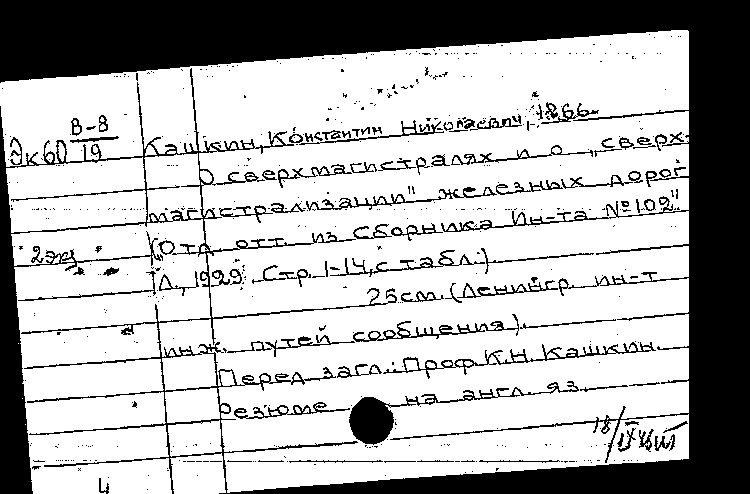 В-8
Эк60 19
Кашкин, Константин Николаевич, 1866-
О сверхмагистралях и о „сверх-
магистрализации" железных дорог
(„Отд. отт. из Сборника Ин-та №102"
2экз
Л., 1929. Стр. 1-14, с табл.)
25см. (Ленингр. ин-т
инж. путей сообщения).
Перед загл.: Проф. К.Н. Кашкин.
Резюме на англ. яз.
18/IX
4